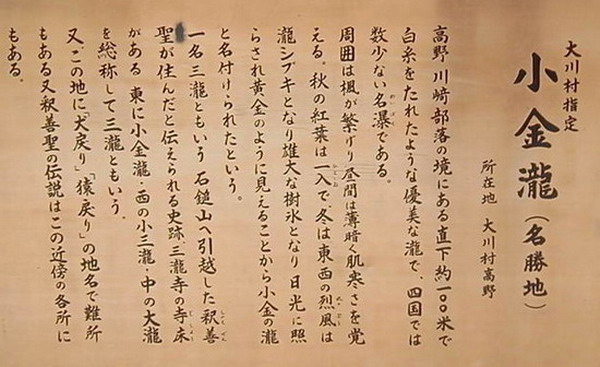 大川村指定
小金瀧(名勝地)
所在地 大川村高野
高野川﨑部落の境にある直下約一〇〇米で
白糸をたれたような優美な瀧で、四国では
数少ない名瀑である。
周囲は楓が繁げり昼間は薄暗く肌寒さを覚
える。秋の紅葉は一入で、冬は東西の烈風は
瀧シブキとなり雄大な樹氷となり日光に照
らされ黄金のように見えることから小金の瀧
と名付けられたという。
一名三瀧ともいう石鎚山へ引越した釈善
聖が住んだと伝えられる史跡、三瀧寺の寺床
がある 東に小金瀧・西の小三瀧・中の大瀧
を総称して三瀧ともいう。
又、この地に「犬戻り」「猿戻り」の地名で難所
もある又釈善聖の伝説はこの近傍の各所に
もある。